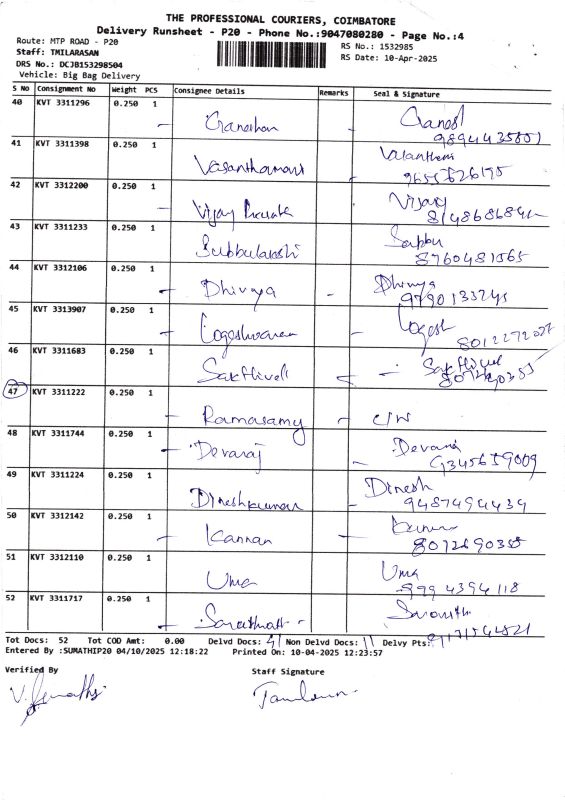 THE PROFESSIONAL COURIERS, COIMBATORE
Delivery Runsheet - P20 - Phone No.:9047080280 - Page No.:4
Route: MTP ROAD - P20
RS No.: 1532985
Staff: TMILARASAN
RS Date: 10-Apr-2025
DRS No.: DCJB153298504
Vehicle: Big Bag Delivery
S No Consignment No Weight PCS Consignee Details Remarks Seal & Signature
40 KVT 3311296 0.250 1 Ganeshan Ganesh
41 KVT 3311398 0.250 1
9655626195
42 KVT 3312200 0.250 1 Vijay Vijay
43 KVT 3311233 0.250 1 Subbulakshi Subbu
8760481565
44 KVT 3312106 0.250 1 Dhivya Dhivya
9790133245
45 KVT 3313907 0.250 1 Logeshwaran Logesh
46 KVT 3311683 0.250 1 Sakthivell Sakthivel
47 KVT 3311222 0.250 1 Ramasamy C/W
48 KVT 3311744 0.250 1 Devaraj Devaraj
9345659009
49 KVT 3311224 0.250 1 Dineshkumar Dinesh
9487494434
50 KVT 3312142 0.250 1 Kannan
8072690355
51 KVT 3312110 0.250 1 Uma Uma
9994394118
52 KVT 3311717 0.250 1
Tot Docs: 52 Tot COD Amt: 0.00 Delvd Docs: Non Delvd Docs: Delvy Pts:
Entered By :SUMATHIP20 04/10/2025 12:18:22 Printed On: 10-04-2025 12:23:57
Verified By Staff Signature